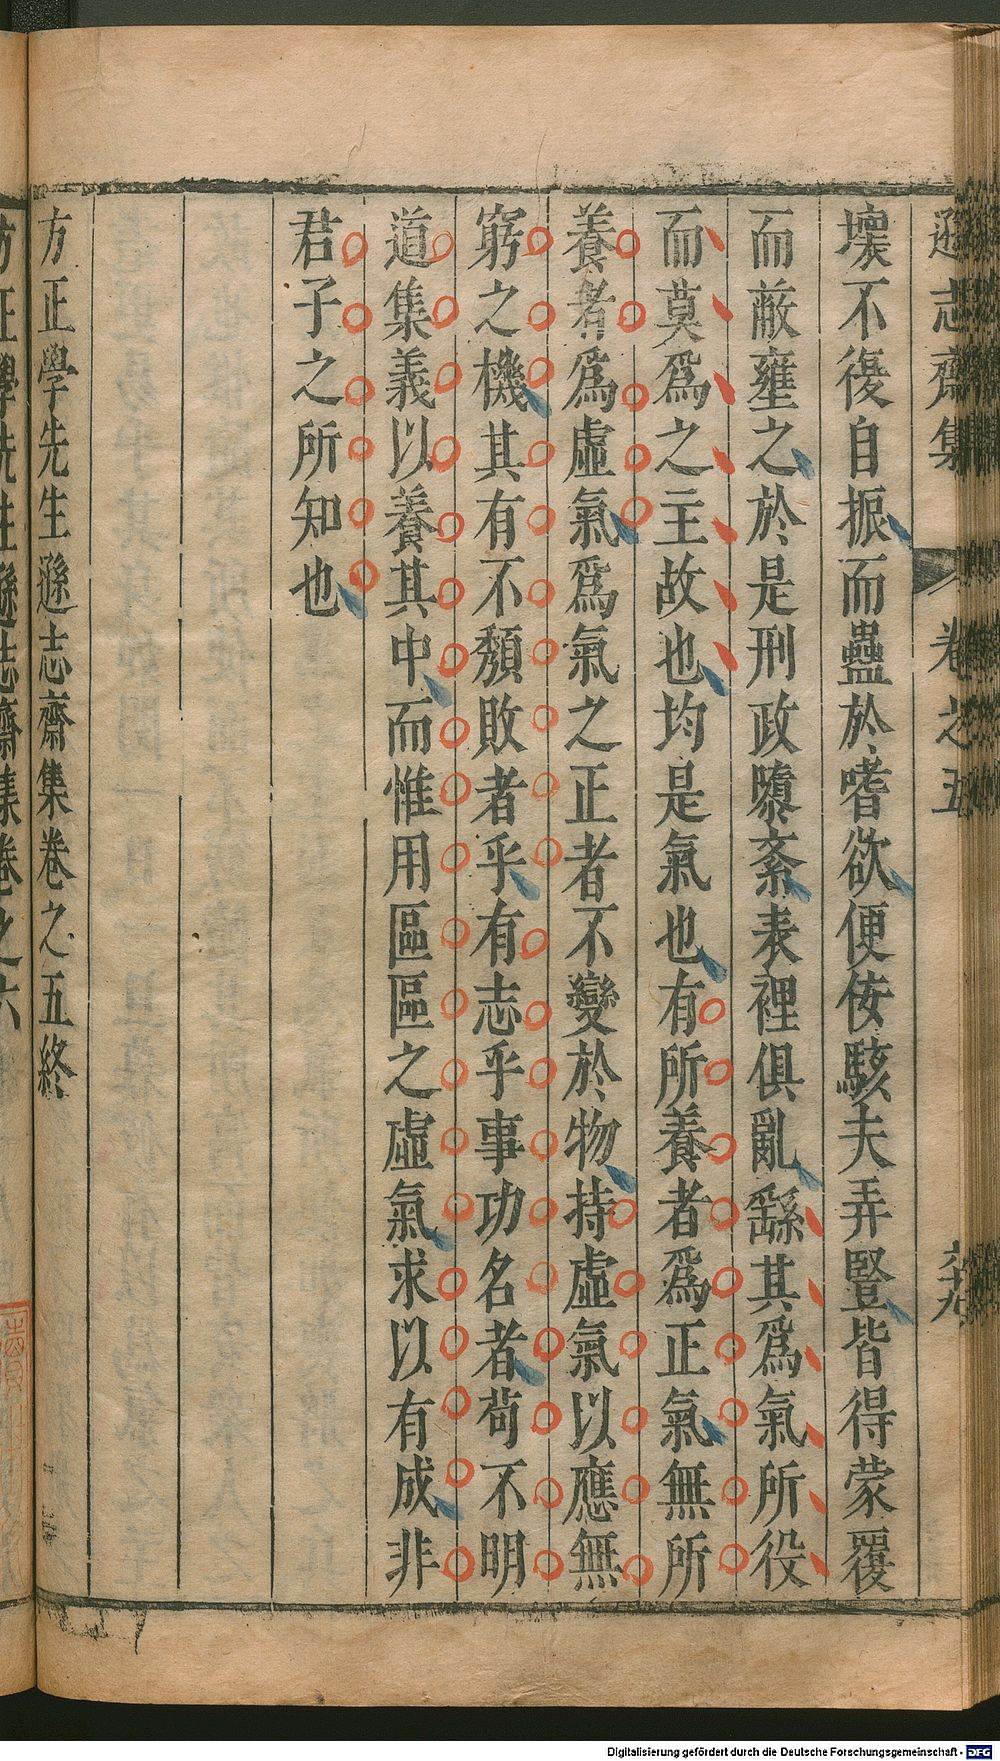 遜志齋集 卷之五 六十九
壞不復自振而蠱於嗜欲便佞駭夫弄豎皆得蒙覆
而蔽壅之於是刑政隳紊表裡俱亂繇其爲氣所役
而莫爲之主故也均是氣也有所養者爲正氣無所
養者爲虛氣爲氣之正者不變於物持虛氣以應無
窮之機其有不頹敗者乎有志乎事功名者苟不明
道集義以養其中而惟用區區之虛氣求以有成非
君子之所知也
方正學先生遜志齋集卷之五終
方正學先生遜志齋集卷之六
Digitalisierung gefördert durch die Deutsche Forschungsgemeinschaft - DFG